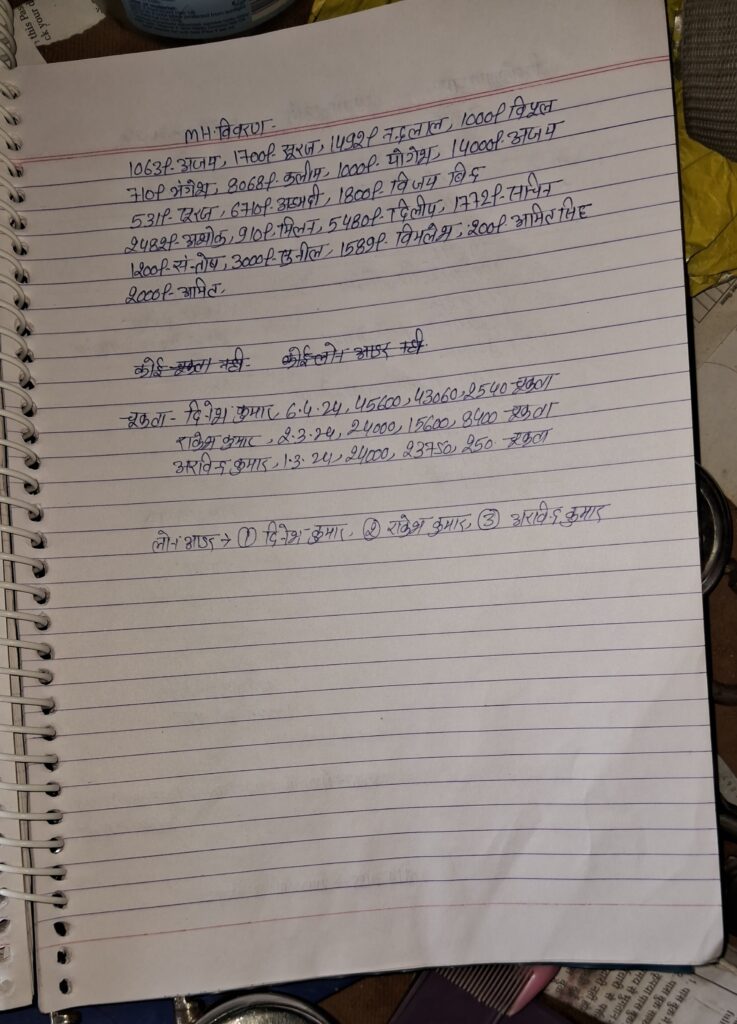 MH विवरण -
1063f- अजय, 1700f- सूरज, 1492f नन्दलाल, 1000f विपूल
710f मंगेश, 8068f- कलीम, 1000f- योगेश, 14000f- अजय
531f- सूरज, 670f- अहमदी, 1800f- विजय विन्द
2482f- अशोक, 910f- मिलन, 5480f- दिलीप, 1772f- सचिन
1200f- संन्तोष, 3000f- सुनील, 1589f- विमलेश, 200f अमित सिंह
2000f- अमित.
कोई चुकता नही- कोई लोन आडर नही.
चुकता - दिनेश कुमार, 6.4.24, 45600, 43060, 2540 चुकता
राकेश कुमार, 2.3.24, 24000, 15600, 8400 चुकता
अरविन्द कुमार, 1.3.24, 24000, 23750, 250. चुकता
लोन आडर → ① दिनेश कुमार, ② राकेश कुमार, ③ अरविन्द कुमार